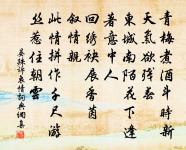 青梅煮酒斗時新
天氣欲殘春
東城南陌花下逢
著意中人
回繡袂展香茵
叙情親
此情拚作千尺游
絲惹住朝雲
晏殊訴衷情